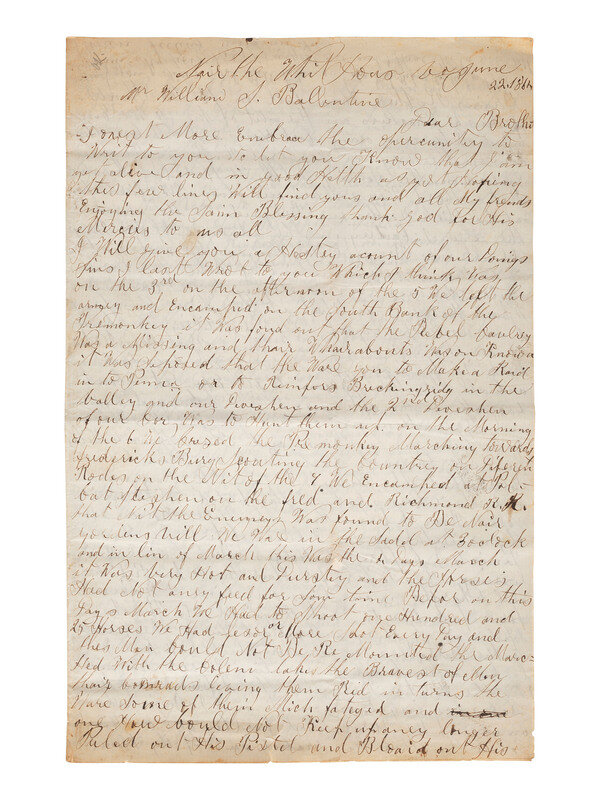 Nair the Whit Hous va June
22. 1864
Mr William S. Ballentine
Dear Brother
I onest More Embrace the opercunity to
Writ to you to let you Know that I am
yet alive and in good Helth as yet Hoping
this few lines Will find you and all My frends
Enjoying the Saim Blessing thank god for His
Mercies to us all
I Will give you a Hastey acount of our Doings
Sins I last Wrot to you Which I think Was
on the 3rd on the afternoon of the 5 We left the
armey and Encamped on the South Bank of the
Premonkey it Was found out that the Rebel Caulrey
Was a Missing and thair Whearabouts Was on Known
it Was Soposed that the Ware you to Make a Raid
in to or to Reinfors Breckingridg in the
Valley and our Deveshen and the 2nd Deveshen
of our Cor Was to Hunt them up. on the Morning
of the 6 We Crosed the Premonkey Marching towards
Fredericks Burg Scouting the Countrey on Diferen
Rodes on the Nit of the 7 We Encamped at Pol-
cat Steshen on the fred and Richmond R.R.
that Nit the Enemey Was found to Be Nair
gordens vill We War in the Sadel at 3 oclock
and in lin of March this Was the Days March
it Was very Hot and Durstey and the Horses
Had Not aney feed for Som time Befor on this
Days March We Had to Shoot one Hundred and
25 Horses We Had lesor or More Shot Every Day and
thes Men Could Not Be Re Mounted the Marc-
hed With the Colem takes the Bravest of Men
thair Comrads leving them Rid in turns the
Ware Some of them Mich fateged and
one How Could Not Keep up aney longer
Puled out His Pistel and Bload out His